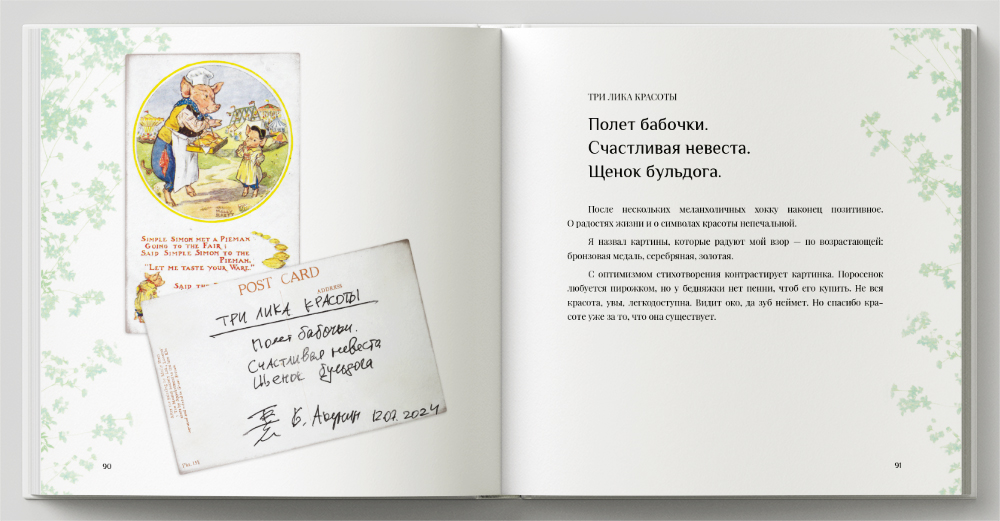 SIMPLE SIMON MET A PIEMAN
GOING TO THE FAIR;
SAID SIMPLE SIMON TO THE
PIEMAN,
"LET ME TASTE YOUR WARE."
SAID
POST CARD
ADDRESS
ТРИ ЛИКА КРАСОТЫ
Полет бабочки.
Счастливая невеста
Щенок бульдога
Б. Акунин 12.07.2024
90
ТРИ ЛИКА КРАСОТЫ
Полет бабочки.
Счастливая невеста.
Щенок бульдога.
После нескольких меланхоличных хокку наконец позитивное.
О радостях жизни и о символах красоты непечальной.
Я назвал картины, которые радуют мой взор — по возрастающей:
бронзовая медаль, серебряная, золотая.
С оптимизмом стихотворения контрастирует картинка. Поросенок
любуется пирожком, но у бедняжки нет пенни, чтоб его купить. Не вся
красота, увы, легкодоступна. Видит око, да зуб неймет. Но спасибо кра-
соте уже за то, что она существует.
91